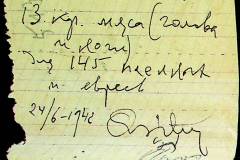 13 кгр. мяса (голова
и ноги)
для 145 пленных
и евреев
24/6-1942